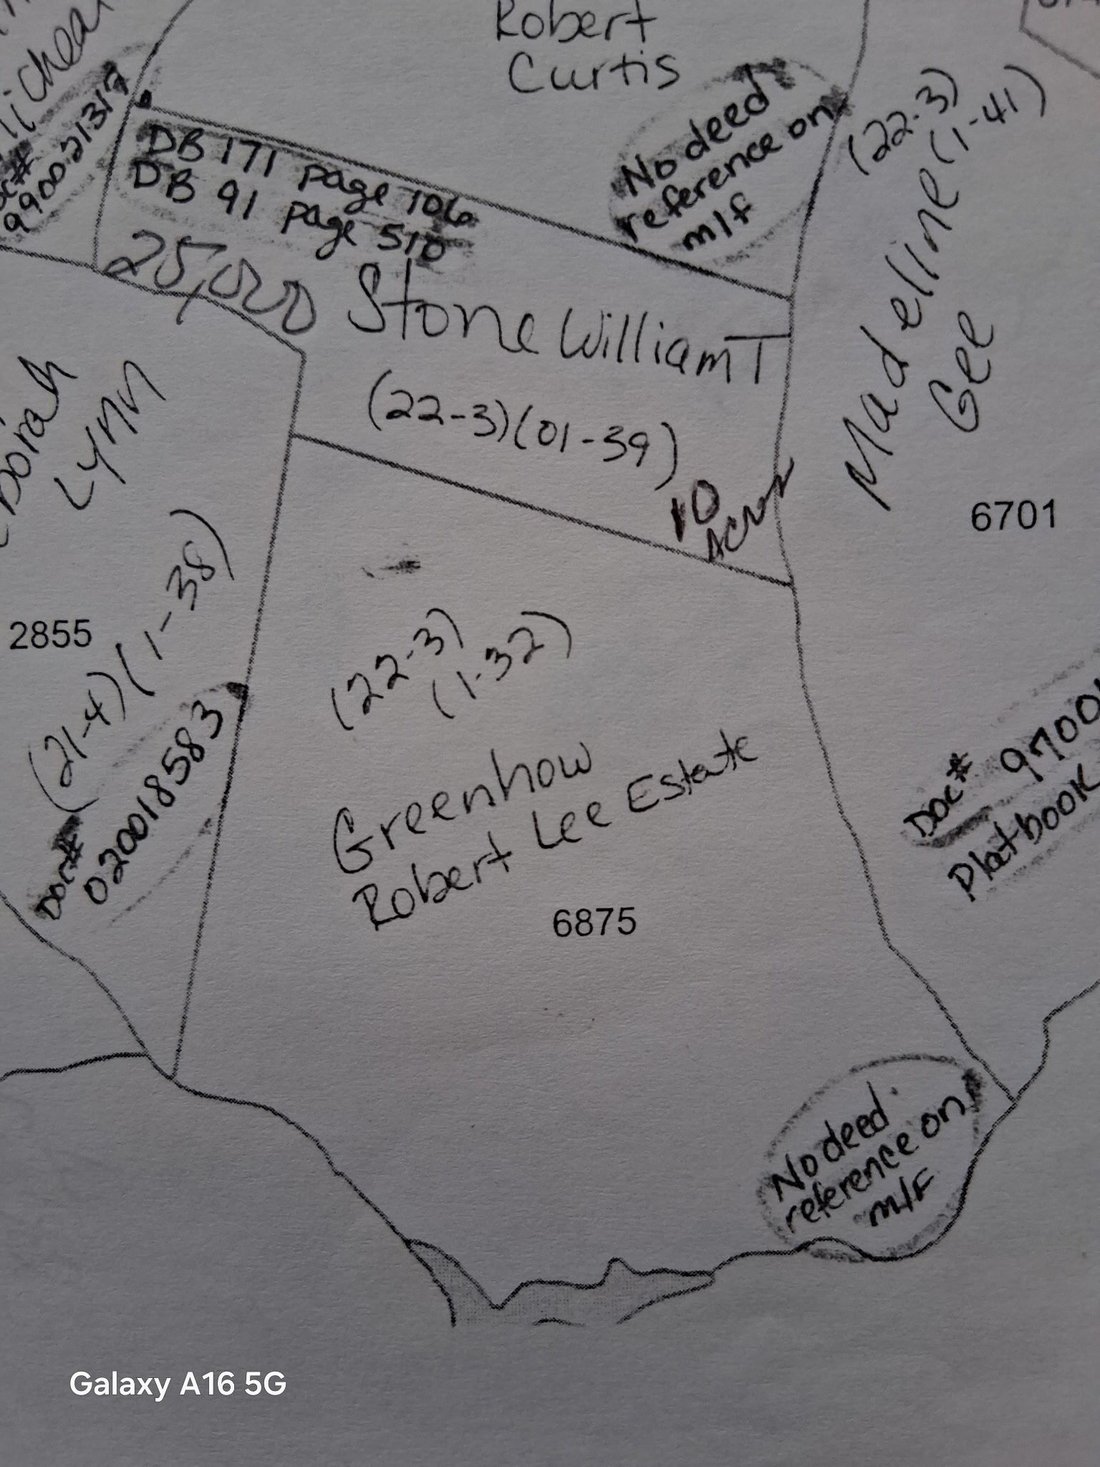 Robert
Curtis
No deed
reference on
m/f
DB 171 page 106
DB 91 page 510
25,000
Stone William T
(22-3)(01-39)
10
Acres
(22-3)
(1-41)
Madeline
Gee
6701
Lynn
2855
(21-4)(1-38)
Doc#
020018583
(22-3)
(1-32)
Greenhow
Robert Lee Estate
6875
Doc#
Platbook
No deed
reference on
m/F
Galaxy A16 5G